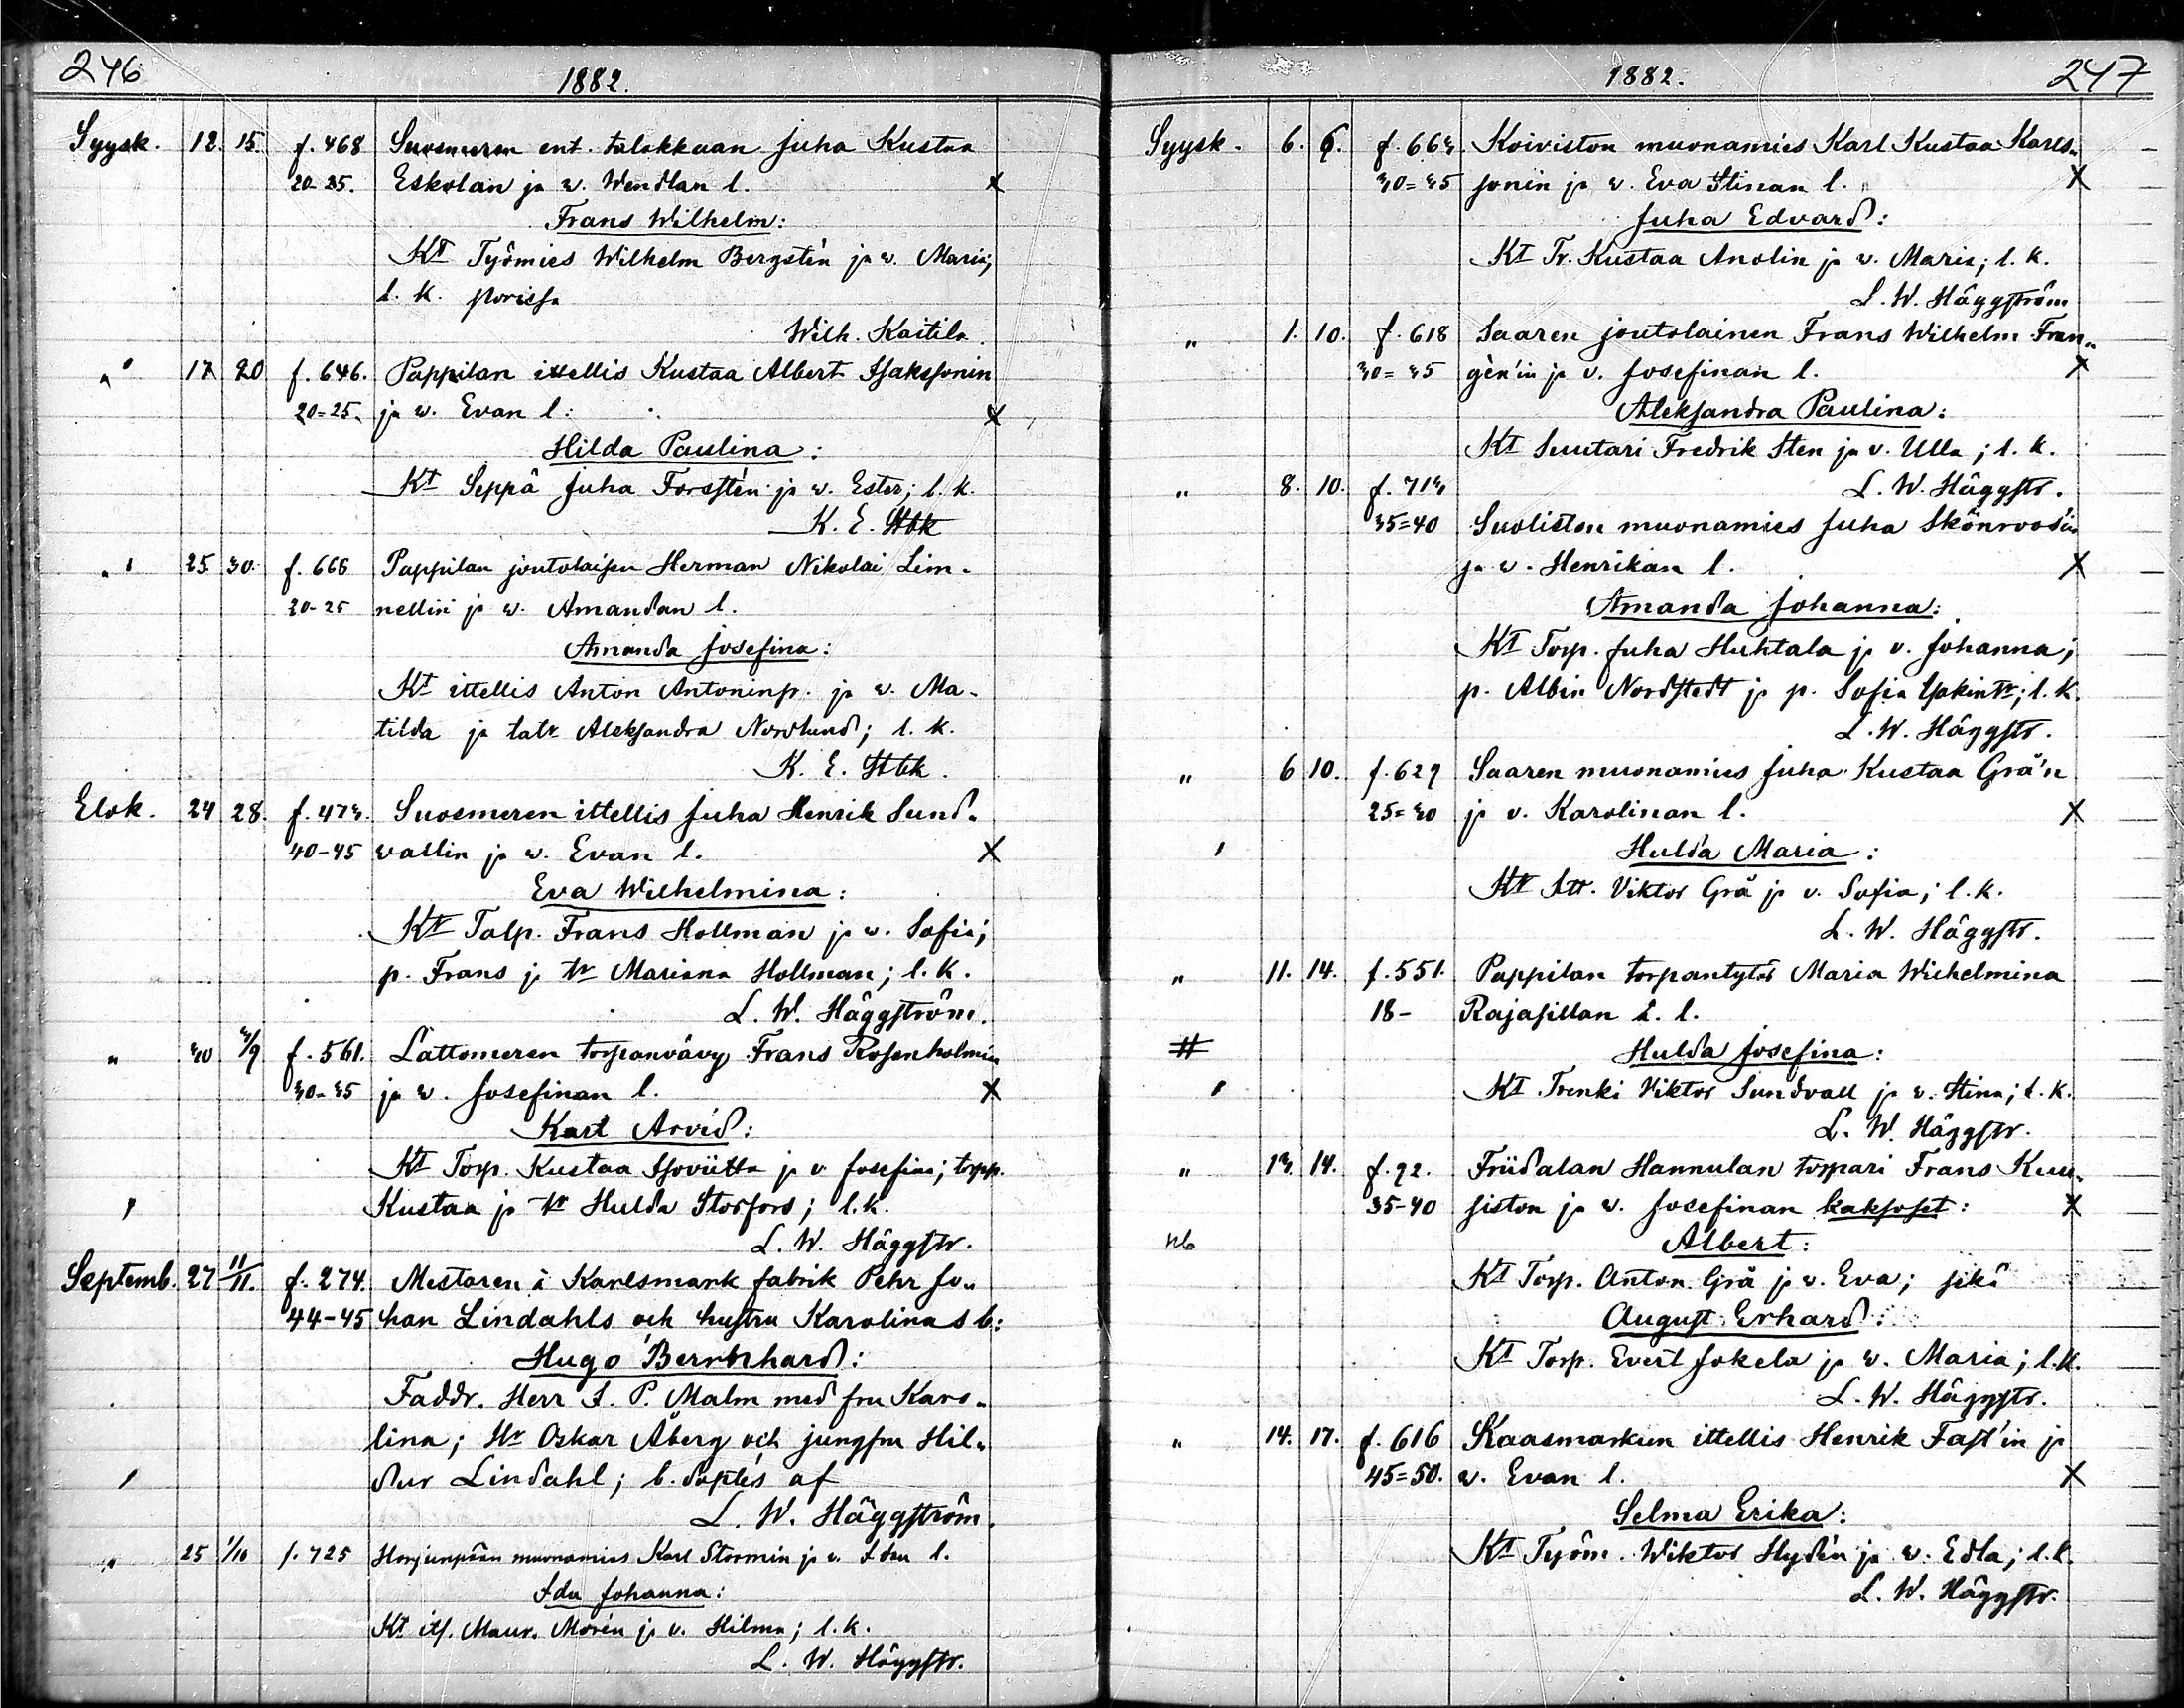 246
1882.
Syysk. 12. 15. f. 468 Suosmeren ent. talokkaan Juha Kustaa
20-25. Eskolan ja w. Wendlan l. X
Frans Wilhelm:
Kt Työmies Wilhelm Bergstén ja w. Maria;
l. k. Porissa
Wilh. Kaitila.
" 17 20 f. 646. Pappilan itellis Kustaa Albert Isaksonin
20=25. ja w. Evan l: X
Hilda Paulina:
Kt Seppä Juha Forstén ja w. Ester; l. k.
K. E. Stbk
" 25 30. f. 666 Pappilan joutolaisen Herman Nikolai Lim-
20-25 nellin ja w. Amandan l.
Amanda Josefina:
Kt ittellis Anton Antoninp. ja w. Ma-
tilda ja tatr Aleksandra Nordlund; l. k.
K. E. Stbk.
Elok. 24 28. f. 473. Suosmeren ittellis Juha Henrik Sund-
40-45 wallin ja w. Evan l. X
Eva Wilhelmina:
Kt Talp. Frans Hollman ja w. Sofia;
p. Frans j. tr Mariana Hollman; l. k.
L. W. Häggström.
" 30 3/9 f. 561. Lattomeren torpanvävy Frans Rosenholmin
30-35 ja w. Josefinan l. X
Karl Arvid:
Kt Torp. Kustaa Isoviitta ja v. Josefina; torpp.
Kustaa ja tr Hulda Storfors; l. k.
L. W. Häggstr.
Septemb. 27 11/11. f. 274. Mestaren i Karlsmark fabrik Pehr Jo-
44-45 han Lindahls och hustru Karolinas b:
Hugo Bernhard:
Faddr. Herr I. P. Malm med fru Karo-
lina; Hr Oskar Åberg och jungfru Hil-
dur Lindahl; b. döptes af
L. W. Häggström.
" 25 1/10 f. 725 Harjunpään muonamies Karl Stormin ja v. Idan l.
Ida Johanna:
Kt its. Maur. Morén ja v. Hilma; l. k.
L. W. Häggstr.
1882.
247
Syysk. 6. 6. f. 663. Koiviston muonamies Karl Kustaa Karls-
30=35 sonin ja w. Eva Stinan l. X
Juha Edvard:
Kt Tr. Kustaa Anolin ja v. Maria; l. k.
L. W. Häggström
" 1. 10. f. 618 Saaren joutolainen Frans Wilhelm Fran-
30=35 gèn'in ja v. Josefinan l. X
Aleksandra Paulina:
Kt Suutari Fredrik Sten ja v. Ulla; l. k.
L. W. Häggstr.
" 8. 10. f. 713
35=40 Suoliston muonamies Juha Skönroos'in
ja w. Henrikan l. X
Amanda Johanna:
Kt Torp. Juha Huhtala ja v. Johanna;
p. Albin Nordstedt ja p. Sofia tr; l. k.
L. W. Häggstr.
" 6 10. f. 629 Saaren muonamies Juha Kustaa Grå'n
25=30 ja v. Karolinan l. X
Hulda Maria:
Kt Itt. Viktor Grå ja v. Sofia; l. k.
L. W. Häggstr.
" 11. 14. f. 551. Pappilan torpantytär Maria Wilhelmina
18- Rajasillan ä. l.
Hulda Josefina:
Kt Trenki Viktor Sundvall ja v. Stina; l. k.
L. W. Häggstr.
" 13. 14. f. 92. Friidalan Hannulan torpari Frans Kuu-
35-40 siston ja w. Josefinan kaksoset: X
nb Albert:
Kt Torp. Anton Grå ja w. Eva; sekä
August Erhard:
Kt Torp. Evert Jokela ja w. Maria; l. k.
L. W. Häggstr.
" 14. 17. f. 616 Kaasmarkun ittellis Henrik Fast'in ja
45=50. w. Evan l. X
Selma Erika:
Kt Työm. Wiktor Hydén ja w. Edla; l. k.
L. W. Häggstr.